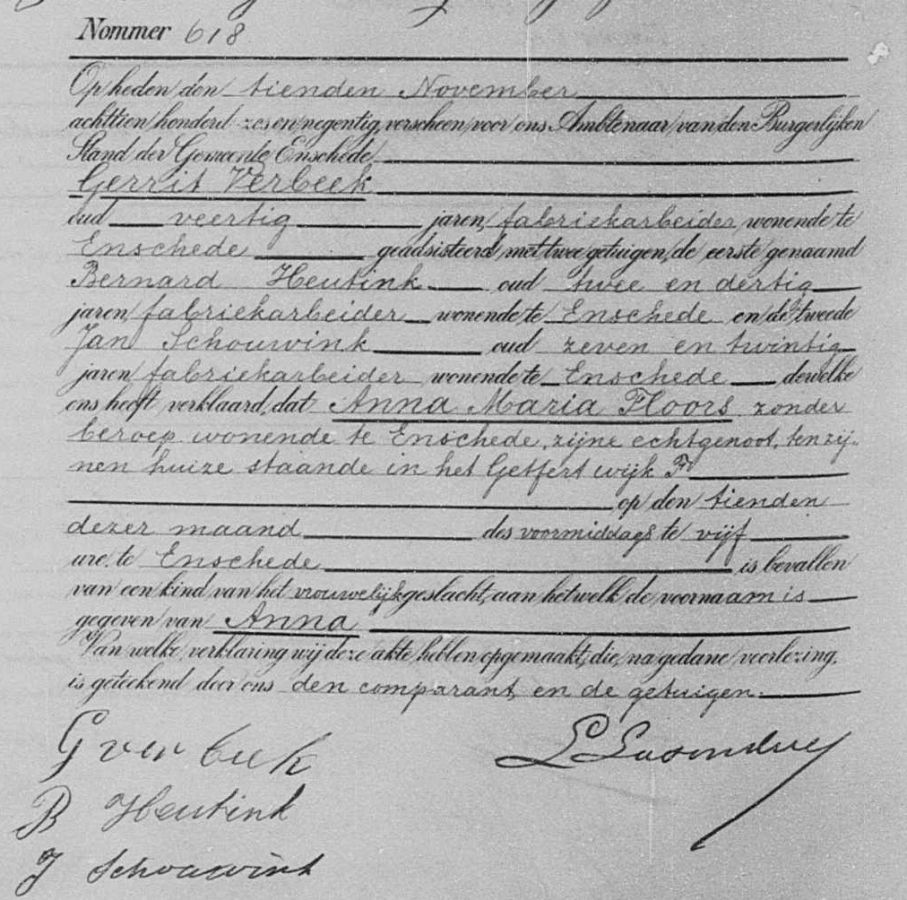 Nommer 618
Op heden den tienden November
achttien honderd zes en negentig, verscheen voor ons Ambtenaar van den Burgerlijken
Stand der Gemeente Enschede,
Gerrit Verbeek
oud veertig jaren, fabriekarbeider, wonende te
Enschede geadsisteerd met twee getuigen, de eerste genaamd
Bernard Heutink oud twee en dertig
jaren, fabriekarbeider wonende te Enschede en de tweede
Jan Schouwink oud zeven en twintig
jaren, fabriekarbeider wonende te Enschede dewelke
ons heeft verklaard, dat Anna Maria Floors, zonder
beroep wonende te Enschede, zijne echtgenoot, ten zij-
nen huize staande in het Getfert wijk F
op den tienden
dezer maand des voormiddags te vijf
ure, te Enschede is bevallen
van een kind van het vrouwelijk geslacht, aan hetwelk de voornaam is
gegeven van Anna
Van welke verklaring wij deze akte hebben opgemaakt, die, na gedane voorlezing,
is geteekend door ons den comparant en de getuigen.
G verbeek
B Heutink
J Schouwink